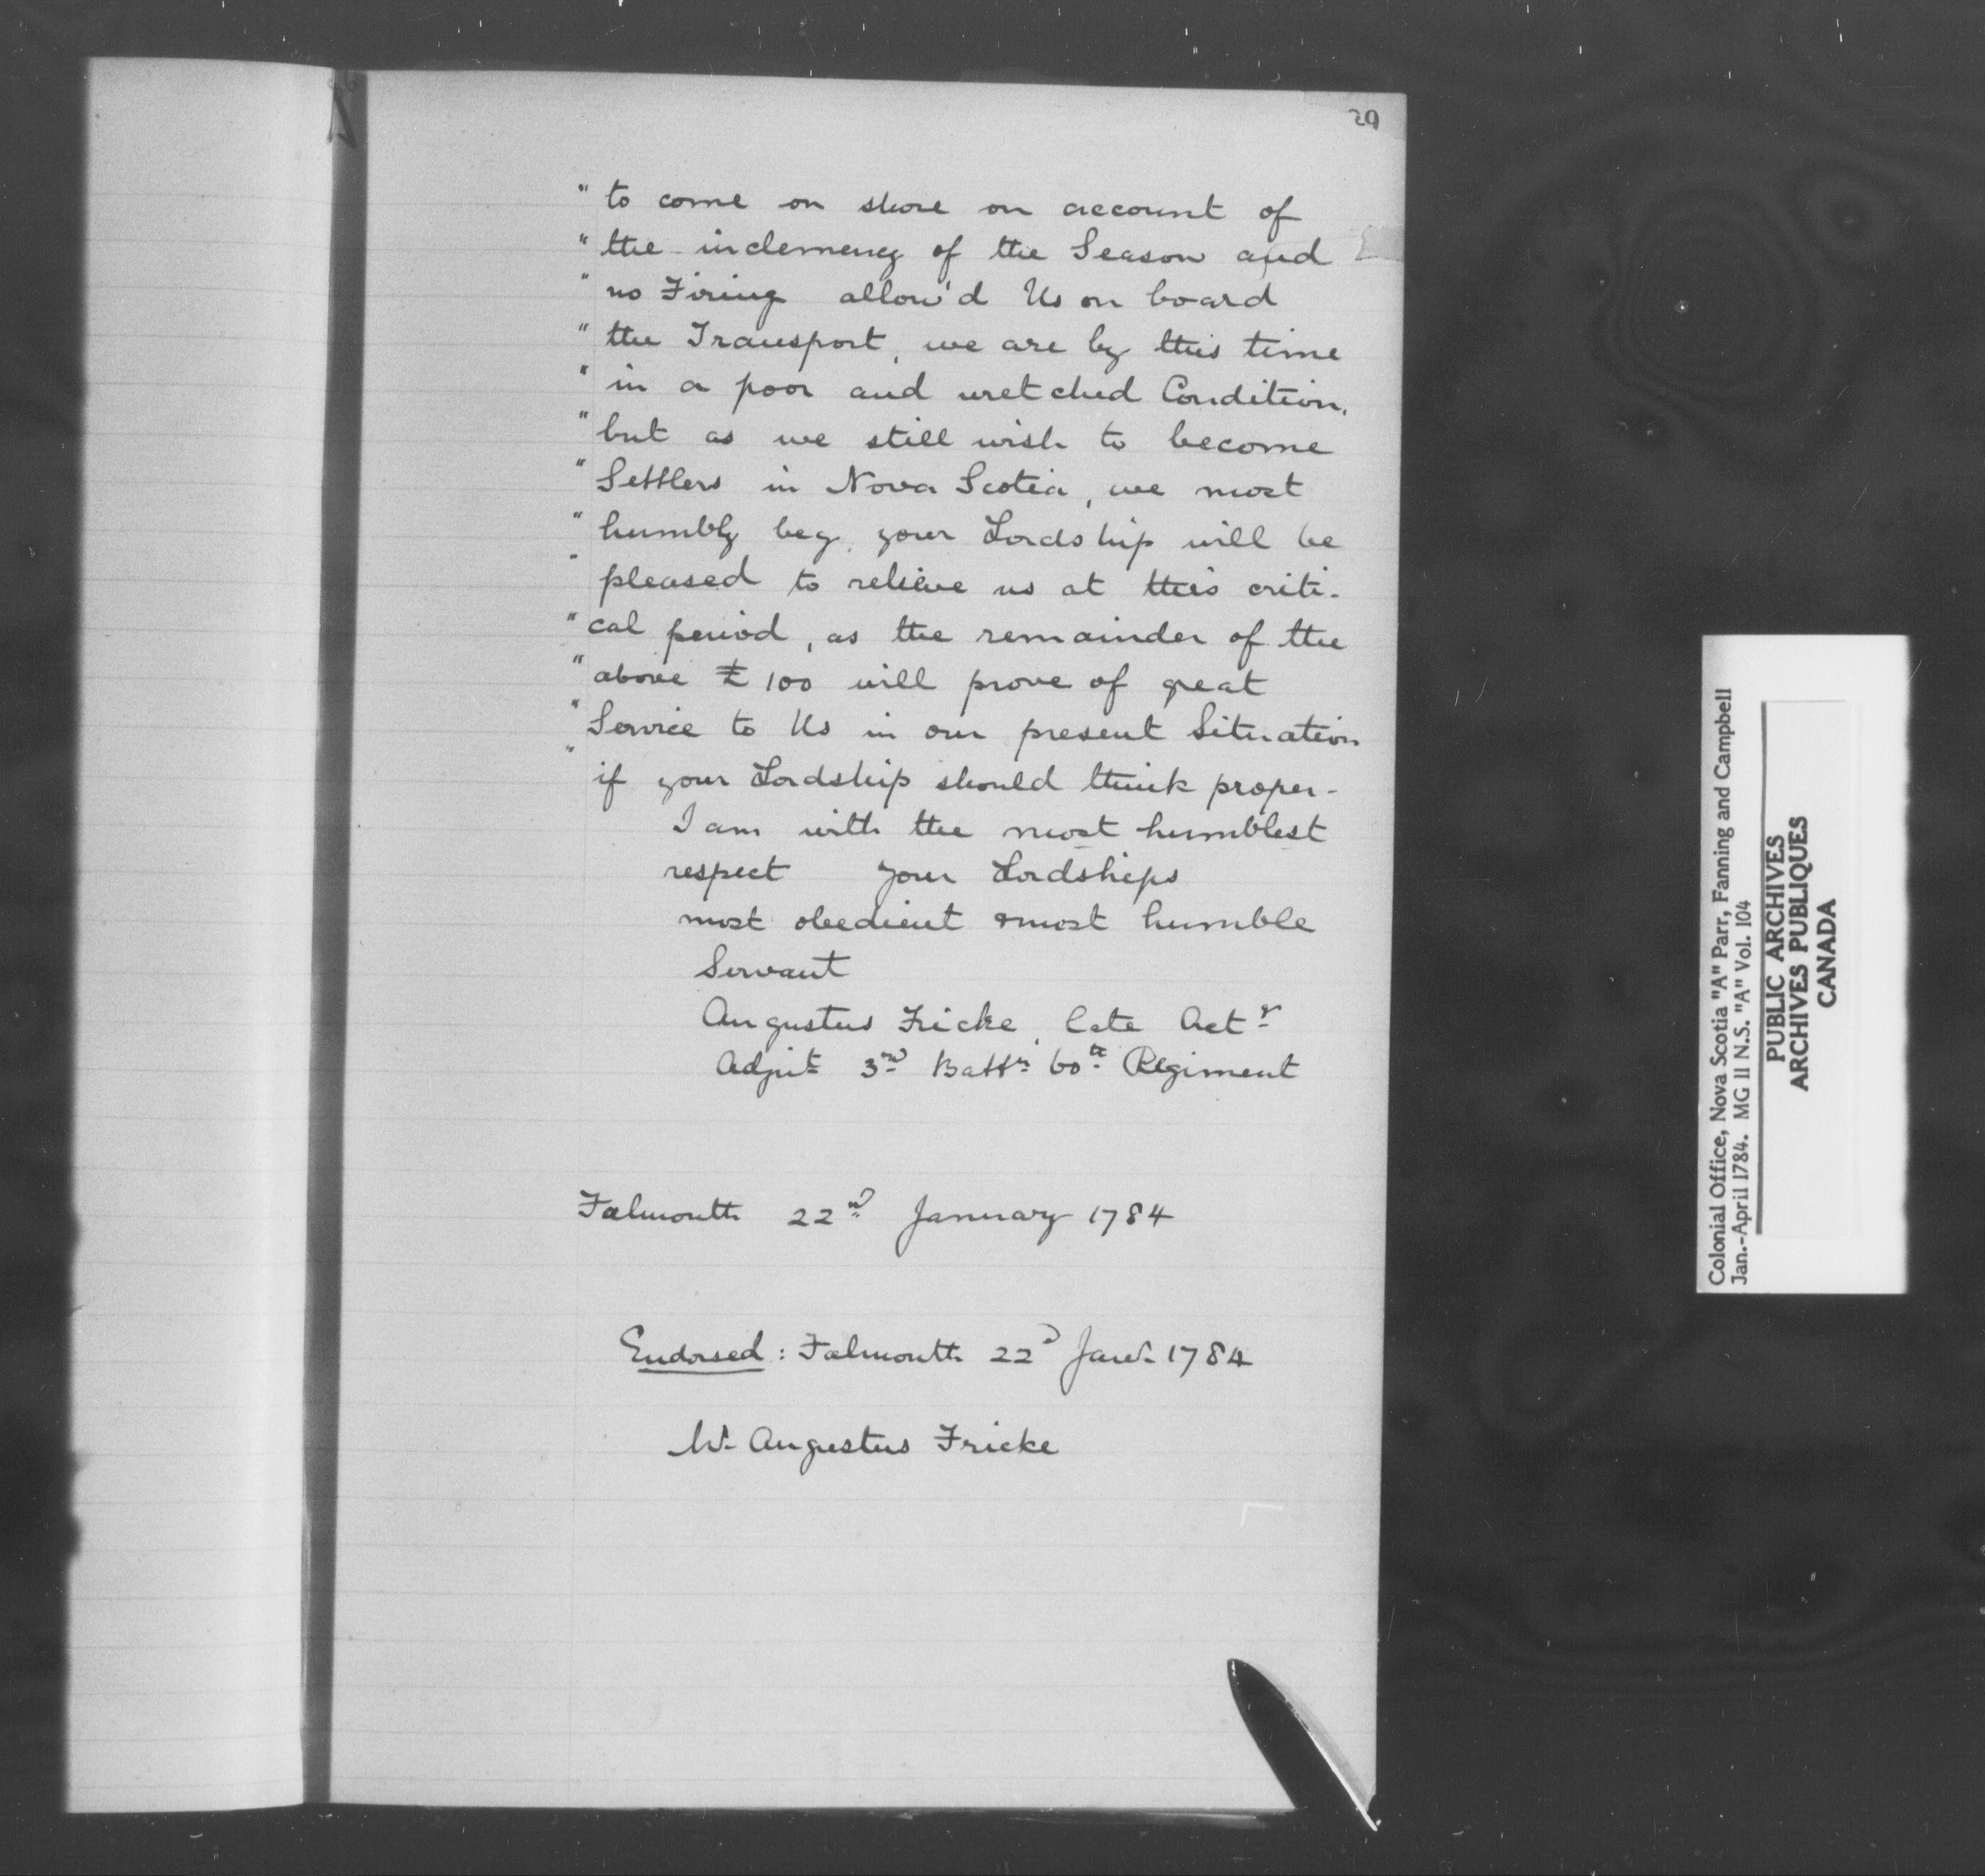 29
" to come on shore on account of
" the inclemency of the Season and
" no Firing allow'd Us on board
" the Transport, we are by this time
" in a poor and wretched Condition,
" but as we still wish to become
" Settlers in Nova Scotia, we most
" humbly beg, your Lordship will be
" pleased to relieve us at this criti-
" cal period, as the remainder of the
" above £100 will prove of great
" Service to Us in our present Situation
" if your Lordship should think proper-
I am with the most humblest
respect your Lordships
most obedient & most humble
Servant
Augustus Fricke, late Actr
Adjut 3rd Battn 60th Regiment
Falmouth 22nd January 1784
Endorsed: Falmouth 22d Jany 1784
Mr Augustus Fricke
Colonial Office, Nova Scotia "A" Parr, Fanning and Campbell
Jan.-April 1784. MG 11 N.S. "A" Vol. 104
PUBLIC ARCHIVES
ARCHIVES PUBLIQUES
CANADA